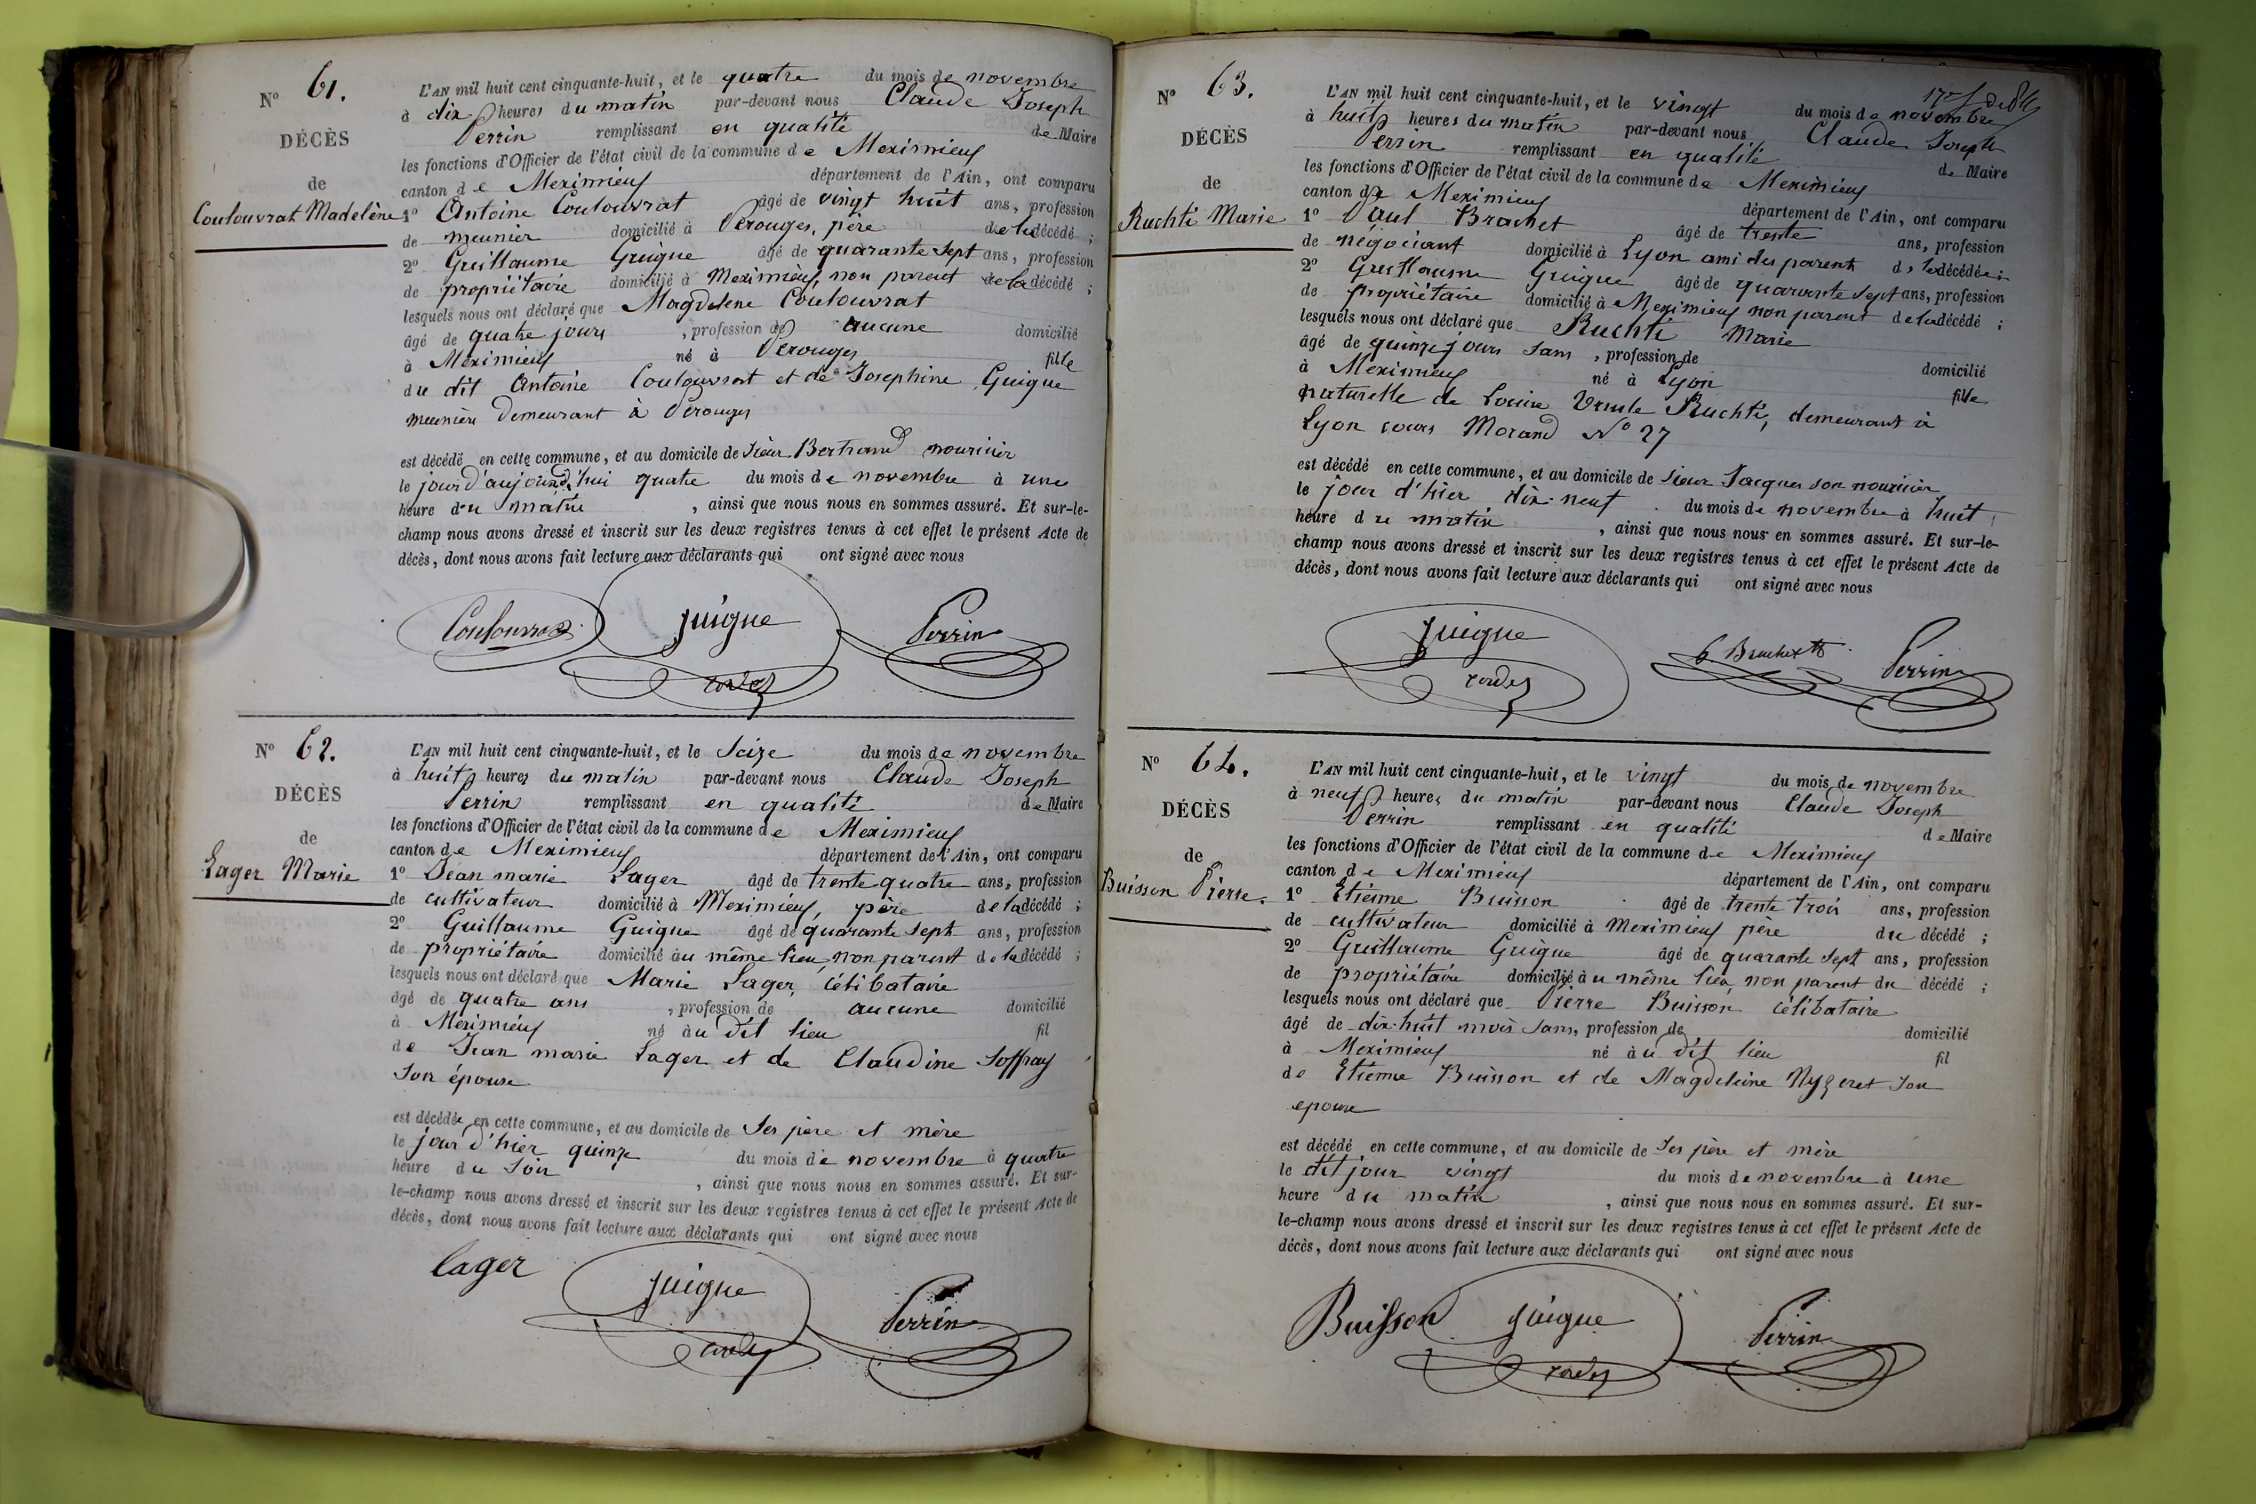 N° 61.
DÉCÈS
de
Coulouvrat Madelène
L'AN mil huit cent cinquante-huit, et le quatre du mois de novembre
à dix heures du matin par-devant nous Claude Joseph
Perrin remplissant en qualité de Maire
les fonctions d'Officier de l'état civil de la commune de Meximieux
canton de Meximieux département de l'Ain, ont comparu
1° Antoine Coulouvrat âgé de vingt huit ans, profession
de meunier domicilié à Perouges, père de la décédé ;
2° Guillaume Guigue âgé de quarante sept ans, profession
de propriétaire domicilié à Meximieux, non parent de la décédé ;
lesquels nous ont déclaré que Magdelene Coulouvrat
âgé de quatre jours , profession de aucune domicilié
à Meximieux né à Perouges fille
du dit Antoine Coulouvrat et de Josephine Guigue
meuniers demeurant à Perouges
est décédé en cette commune, et au domicile de sieur Bertrand nourricier
le jour d'aujourd'hui quatre du mois de novembre à une
heure du matin , ainsi que nous nous en sommes assuré. Et sur-le-
champ nous avons dressé et inscrit sur les deux registres tenus à cet effet le présent Acte de
décès, dont nous avons fait lecture aux déclarants qui ont signé avec nous
Coulouvrat Guigue Perrin
N° 62.
DÉCÈS
de
Lager Marie
L'AN mil huit cent cinquante-huit, et le seize du mois de novembre
à huit heures du matin par-devant nous Claude Joseph
Perrin remplissant en qualité de Maire
les fonctions d'Officier de l'état civil de la commune de Meximieux
canton de Meximieux département de l'Ain, ont comparu
1° Jean marie Lager âgé de trente quatre ans, profession
de cultivateur domicilié à Meximieux, père de la décédé ;
2° Guillaume Guigue âgé de quarante sept ans, profession
de propriétaire domicilié au même lieu, non parent de la décédé ;
lesquels nous ont déclaré que Marie Lager, célibataire
âgé de quatre ans , profession de aucune domicilié
à Meximieux né au dit lieu fil
de Jean marie Lager et de Claudine Soffray
son épouse
est décédée en cette commune, et au domicile de ses père et mère
le jour d'hier quinze du mois de novembre à quatre
heure du soir , ainsi que nous nous en sommes assuré. Et sur-
le-champ nous avons dressé et inscrit sur les deux registres tenus à cet effet le présent Acte de
décès, dont nous avons fait lecture aux déclarants qui ont signé avec nous
Lager Guigue Perrin
N° 63.
DÉCÈS
de
Ruchti Marie
L'AN mil huit cent cinquante-huit, et le vingt du mois de novembre
à huit heures du matin par-devant nous Claude Joseph
Perrin remplissant en qualité de Maire
les fonctions d'Officier de l'état civil de la commune de Meximieux
canton de Meximieux département de l'Ain, ont comparu
1° Paul Brachet âgé de trente ans, profession
de négociant domicilié à Lyon ami des parents de la décédée ;
2° Guillaume Guigue âgé de quarante sept ans, profession
de propriétaire domicilié à Meximieux non parent de la décédé ;
lesquels nous ont déclaré que Ruchti Marie
âgé de quinze jours sans , profession de domicilié
à Meximieux né à Lyon fille
naturelle de Louise Ursule Ruchti, demeurant à
Lyon cours Morand N° 27
est décédé en cette commune, et au domicile de sieur Jacques son nourricier
le jour d'hier dix-neuf du mois de novembre à huit
heure du matin , ainsi que nous nous en sommes assuré. Et sur-le-
champ nous avons dressé et inscrit sur les deux registres tenus à cet effet le présent Acte de
décès, dont nous avons fait lecture aux déclarants qui ont signé avec nous
Guigue Brachet Perrin
N° 64.
DÉCÈS
de
Buisson Pierre.
L'AN mil huit cent cinquante-huit, et le vingt du mois de novembre
à neuf heures du matin par-devant nous Claude Joseph
Perrin remplissant en qualité de Maire
les fonctions d'Officier de l'état civil de la commune de Meximieux
canton de Meximieux département de l'Ain, ont comparu
1° Etienne Buisson âgé de trente trois ans, profession
de cultivateur domicilié à Meximieux père du décédé ;
2° Guillaume Guigue âgé de quarante sept ans, profession
de propriétaire domicilié au même lieu, non parent du décédé ;
lesquels nous ont déclaré que Pierre Buisson célibataire
âgé de dix-huit mois sans, profession de domicilié
à Meximieux né au dit lieu fil
de Etienne Buisson et de Magdeleine son
epouse
est décédé en cette commune, et au domicile de ses père et mère
le dit jour vingt du mois de novembre à une
heure du matin , ainsi que nous nous en sommes assuré. Et sur-
le-champ nous avons dressé et inscrit sur les deux registres tenus à cet effet le présent Acte de
décès, dont nous avons fait lecture aux déclarants qui ont signé avec nous
Buisson Guigue Perrin